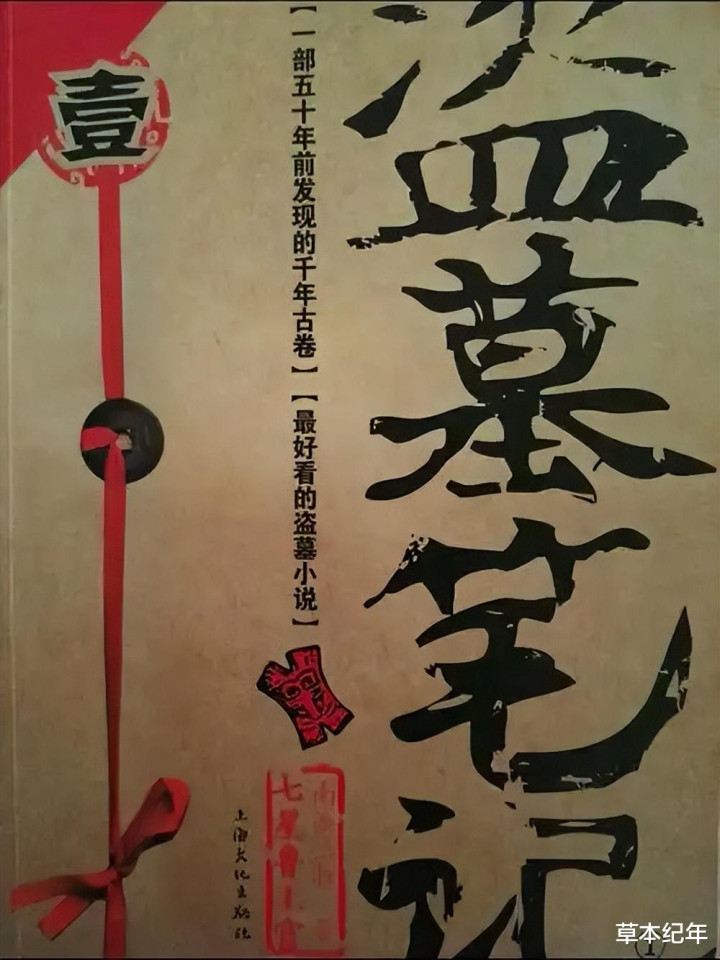 盗墓笔记
【一部五十年前发现的千年古卷】【最好看的盗墓小说】
壹
七星鲁王宫
上海文化出版社
1
草本纪年